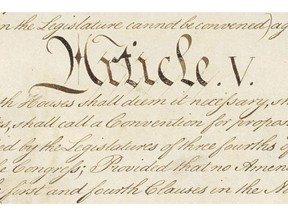 en the Legislature cannot be convened) ag
Article. V.
th Houses shall deem it necessary, sh
s, shall call a Convention for propos
ed by the Legislatures of three fourths of
e Congress; Provided that no Amen
e first and fourth Clauses in the Ni